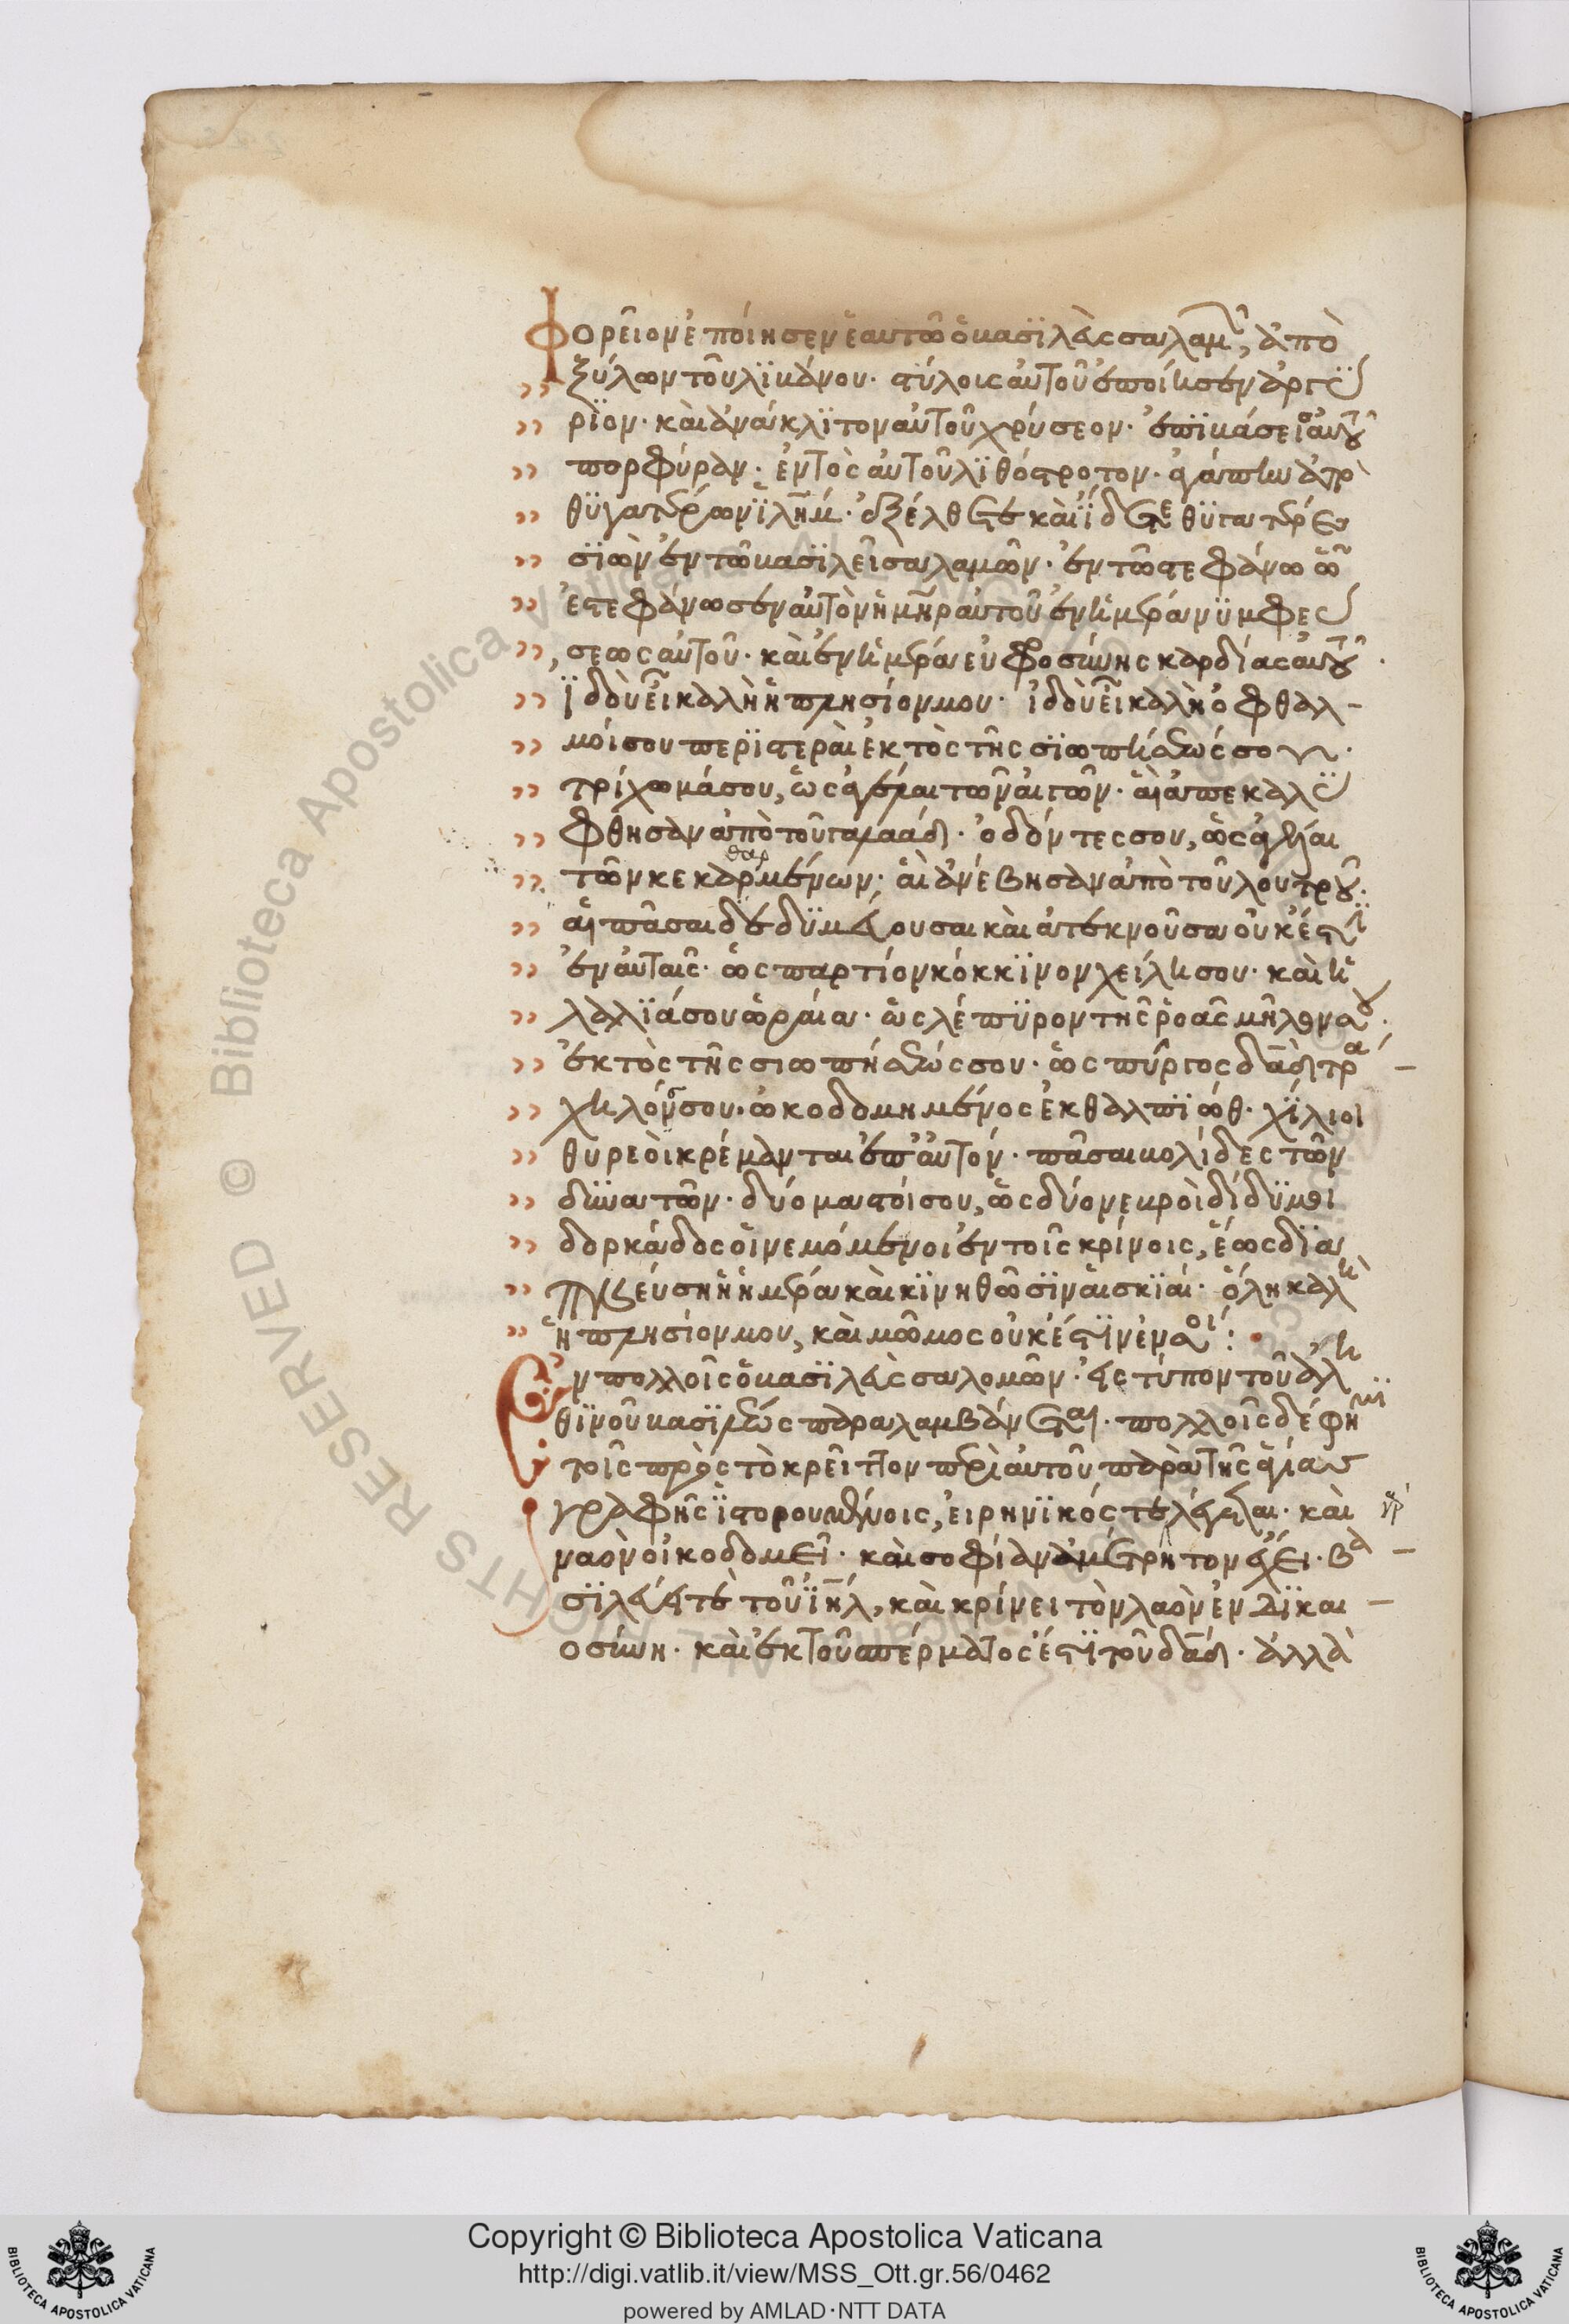 Φορεῖον ἐποίησεν ἑαυτῶ ὁ βασϊλεὺς σαλαμῶν, ἀπὸ
ξύλων τοῦ λϊβάνου· στύλοις αὐτοῦ ἐποίησεν ἀργύ
ρϊον· καὶ ἀνάκλϊτον αὐτοῦ χρύσεον· ἐπϊβάσεις αὐτοῦ
πορφύραν· ἐντὸς αὐτοῦ λϊθόστροτον· ἀγάπην ἀπὸ
θϋγατέρων ϊλημ· ἐξέλθετε καὶ ἴδετε θϋγατέρες
σϊὼν ἐν τῶ βασϊλεῖ σαλαμῶν· ἐν τῶ στεφάνω ὧ
ἐστεφάνωσεν αὐτὸν ἡ μηρ αὐτοῦ ἐν ἡμέρα νϋμφεύ
σεως αὐτοῦ· καὶ ἐν ἡμέρα εὐφροσύνης καρδίας αὐτοῦ·
ϊδοὺ εἶ καλὴ ἡ πλησίον μου· ἰδοὺ εἶ καλὴ ὀφθαλ
μοί σου περϊστεραὶ ἐκτὸς τῆς σϊωπήσεώς σου·
τρίχωμά σου, ὡς ἀγέλαι τῶν αἰγῶν· αἳ ἀπεκαλύ
φθησαν ἀπὸ τοῦ γαλαάδ· ὀδόντες σου, ὡς ἀγέλαι
τῶν κεκαρμένων· αἳ ἀνέβησαν ἀπὸ τοῦ λουτροῦ·
αἱ πᾶσαι δϊδϋμεύουσαι καὶ ἀτεκνοῦσα οὐκ ἔστϊ
ἐν αὐταῖς· ὡς σπαρτίον κόκκϊνον χείλη σου· καὶ ἡ
λαλϊά σου ὡραία· ὡς λέπϋρον τῆς ῥοᾶς μῆλόν σου·
ἐκτὸς τῆς σιωπήσεώς σου· ὡς πύργος δαδ τρά
χηλός σου· ὠκοδομημένος ἐκ θαλπϊώθ· χϊλιοι
θυρεοὶ κρέμανται ἐπ' αὐτόν· πᾶσαι βολίδες τῶν
δϋνατῶν· δύο μαστοί σου, ὡς δύο νεβροὶ δίδϋμοι
δορκάδος οἱ νεμόμενοι ἐν τοῖς κρίνοις, ἕως διὰ
πνεύση ἡ ἡμέρα καὶ κϊνηθῶσϊν αἱ σκϊαί· ὅλη καλὴ
ἡ πλησίον μου, καὶ μῶμος οὐκ ἔστϊν ἐν σοί:
Ἐν πολλοῖς ὁ βασϊλεὺς σαλομῶν· εἰς τύπον τοῦ ἀλη
θϊνοῦ βασϊλέως παραλαμβάνεται· πολλοῖς δέ φημϊ
τοῖς πρὸς τὸ κρεῖττον περὶ αὐτοῦ παρὰ τῆς ἁγίας
γραφῆς ϊστορουμένοις, εἰρηνϊκός τε λέγεται· καὶ
ναὸν οἰκοδομεῖ· καὶ σοφίαν ἀμέτρητον ἔχει· βα
σϊλεύει τε τοῦ ϊηλ, καὶ κρίνει τὸν λαὸν ἐν δϊκαι
οσύνη· καὶ ἐκ τοῦ σπέρματος ἐστϊ τοῦ δαδ· ἀλλὰ
Copyright © Biblioteca Apostolica Vaticana
http://digi.vatlib.it/view/MSS_Ott.gr.56/0462
powered by AMLAD·NTT DATA